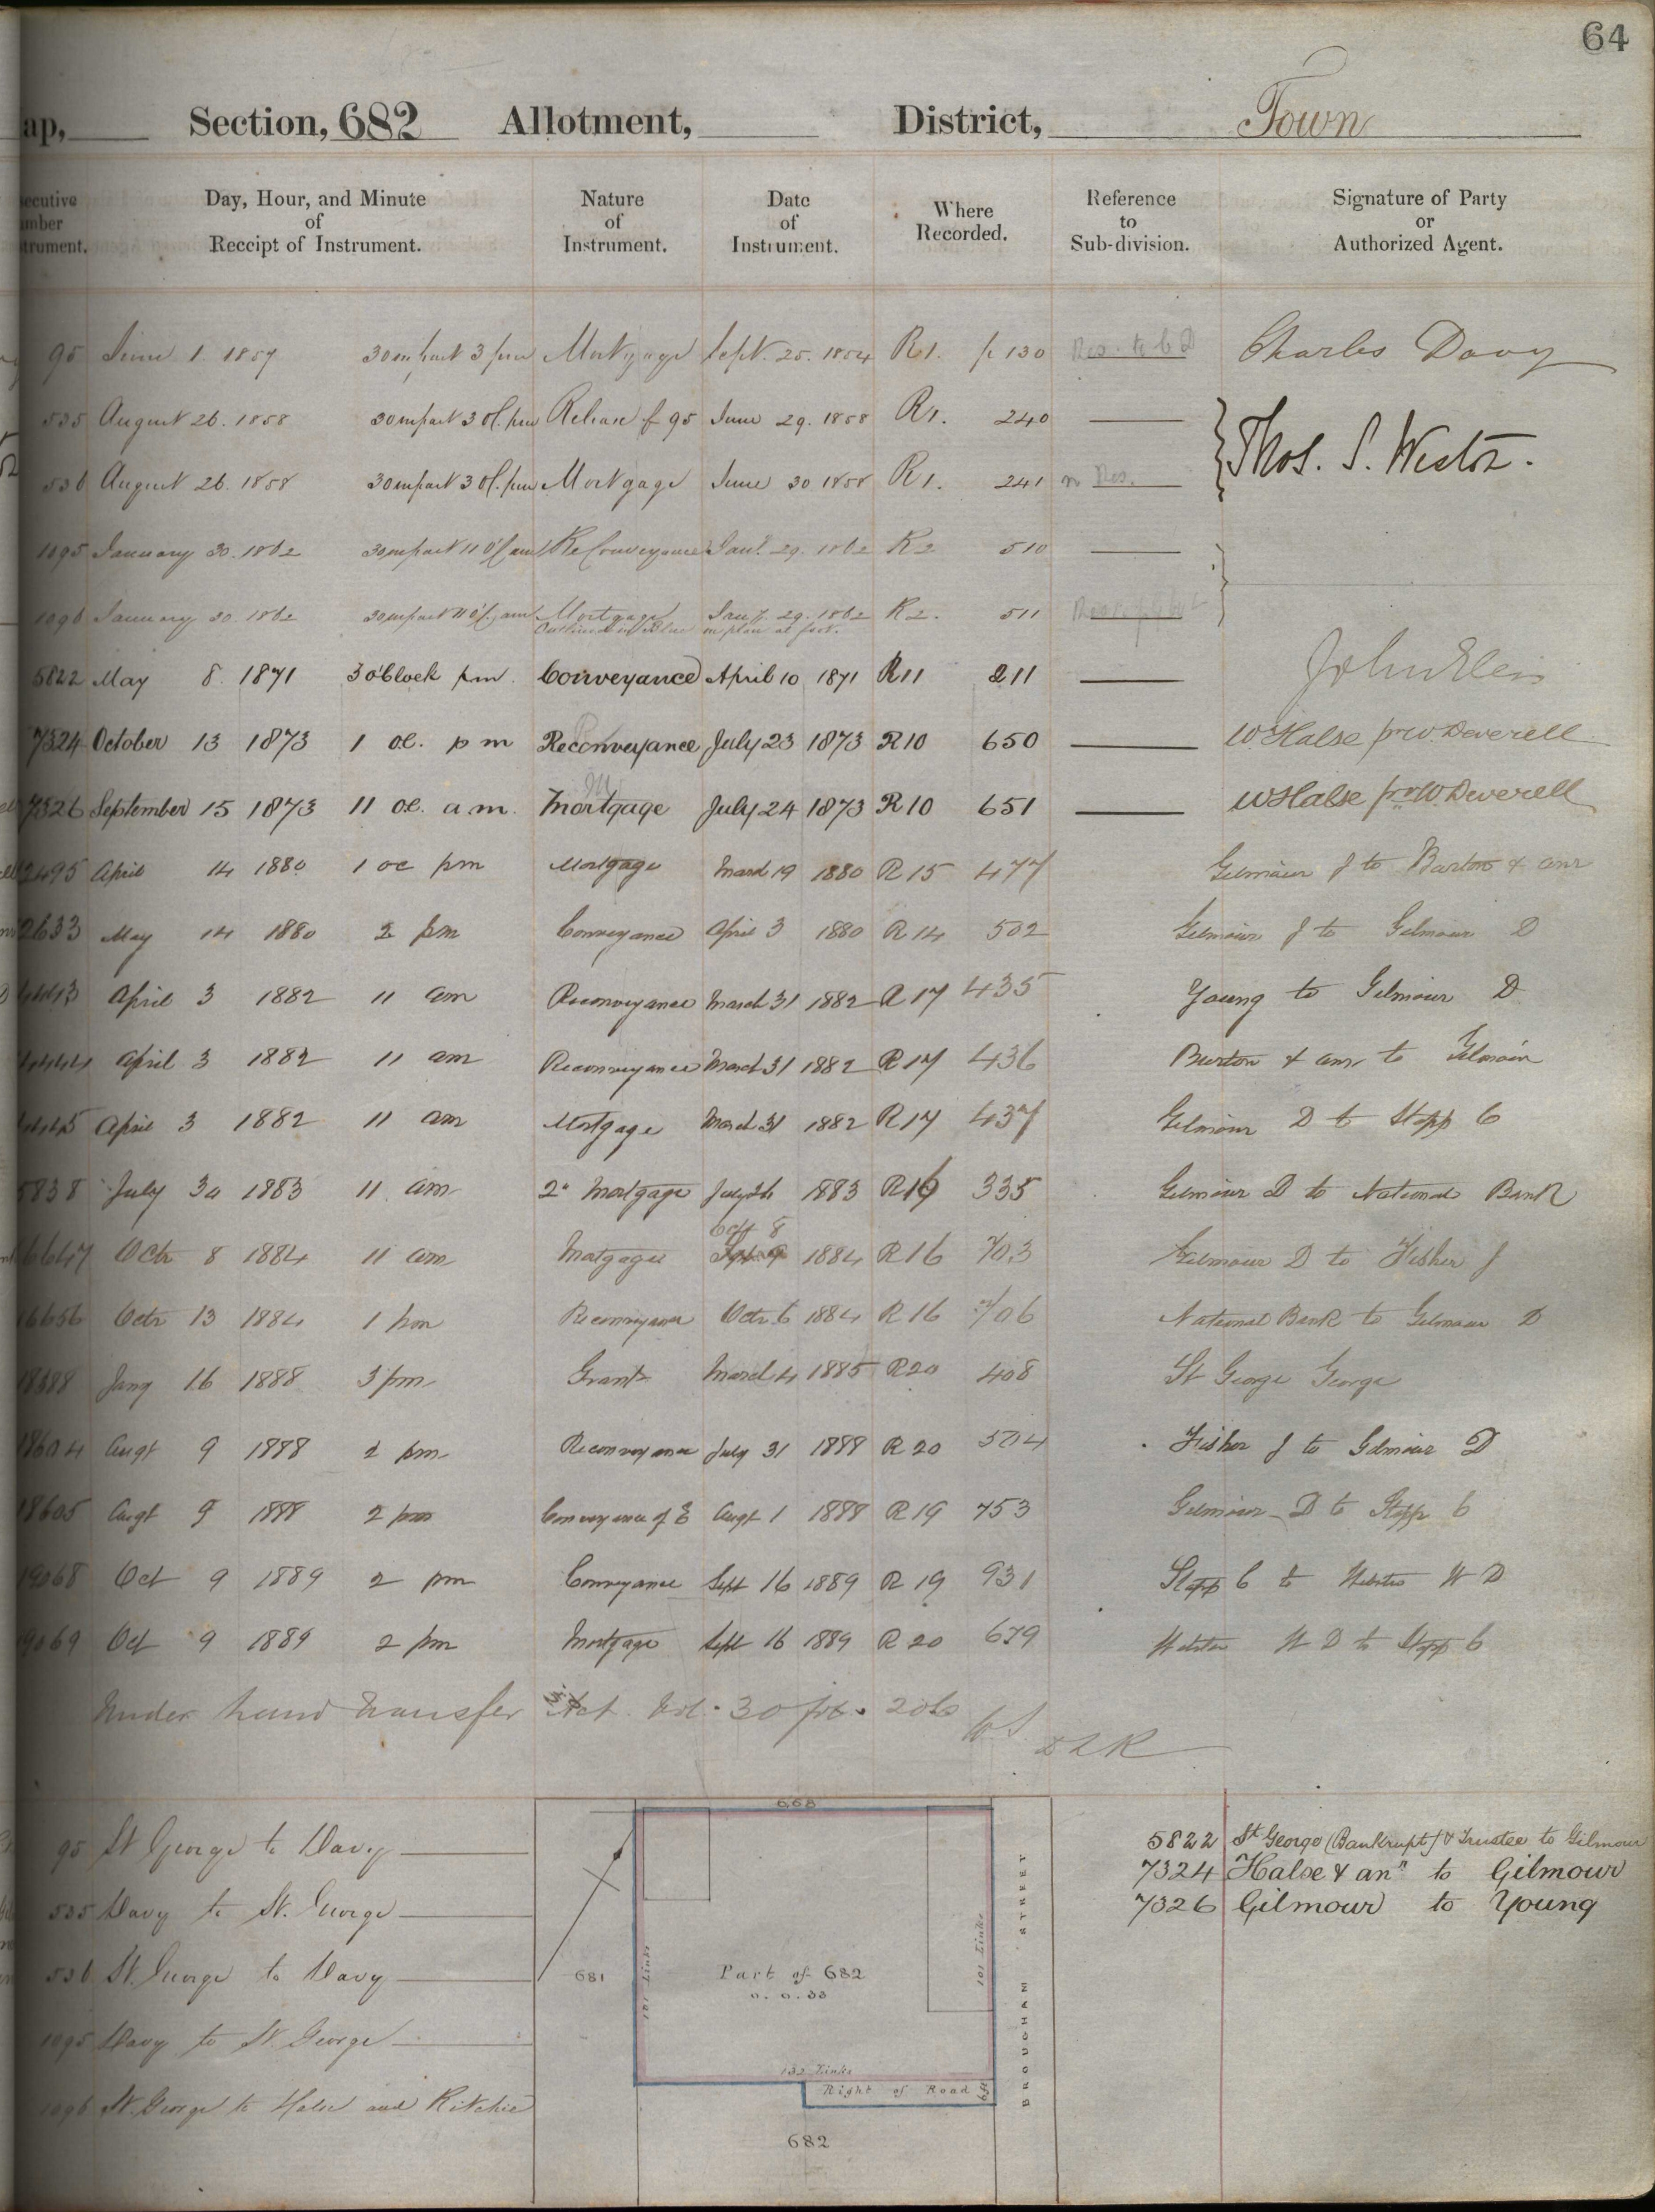 64
ap, Section, 682 Allotment, District, Town
ecutive
mber
trument.
Day, Hour, and Minute
of
Receipt of Instrument.
Nature
of
Instrument.
Date
of
Instrument.
Where
Recorded.
Reference
to
Sub-division.
Signature of Party
or
Authorized Agent.
95 June 1. 1857 30 m past 3 pm Mortgage Sept. 25. 1854 R1. p 130 Charles Davy
535 August 26. 1858 30 m past 3 Ol. pm Release of 95 June 29. 1858 R1. 240
536 August 26. 1858 30 m past 3 Ol. pm Mortgage June 30 1858 R1. 241 Thos. S. Weston.
1095 January 30. 1862 30 m past 11 O'C am ReConveyance Jany. 29. 1862 R2 510
1096 January 30. 1862 30 m past 11 O'C am Mortgage Jany. 29. 1862 R2. 511
Outlined in Blue in plan at foot.
5822 May 8. 1871 3 o'Clock pm. Conveyance April 10 1871 R11 211
7324 October 13 1873 1 oc. p m Reconveyance July 23 1873 R10 650 W Halse pr W. Deverell
7326 September 15 1873 11 o.c. a m. Mortgage July 24 1873 R10 651 W Halse pr W. Deverell
2495 April 14 1880 1 oc pm Mortgage March 19 1880 R 15 477 Gilmour J to Burton & anr
2633 May 14 1880 2 pm Conveyance April 3 1880 R 14 502 Gilmour J to Gilmour D
4443 April 3 1882 11 am Reconveyance March 31 1882 R 17 435 Young to Gilmour D
4444 April 3 1882 11 am Reconveyance March 31 1882 R 17 436 Burton & anr to Gilmour
4445 April 3 1882 11 am Mortgage March 31 1882 R17 437 Gilmour D to Stapp C
5838 July 30 1883 11 am 2d Mortgage July 26 1883 R16 335 Gilmour D to National Bank
Oct 8
6647 Octr 8 1884 11 am Mortgage 1884 R16 703 Gilmour D to Fisher J
16656 Octr 13 1884 1 pm Reconveyance Octr 6 1884 R 16 706 National Bank to Gilmour D
18388 Jany 16 1888 3 pm Grant March 4 1885 R20 408 St George George
18604 Augt 9 1888 2 pm Reconveyance July 31 1888 R 20 504 Fisher J to Gilmour D
18605 Augt 9 1888 2 pm Conveyance of E Augt 1 1888 R 19 753 Gilmour D to Stapp C
19068 Oct 9 1889 2 pm Conveyance Sept 16 1889 R 19 931 Stapp C to Webster W D
19069 Oct 9 1889 2 pm Mortgage Sept 16 1889 R 20 679 Webster W D to Stapp C
Under Land Transfer Act. Vol. 30 fol. 206
DLR
95 St George to Davy
535 Davy to St. George
536 St. George to Davy
1095 Davy to St. George
1096 St. George to Halse and Ritchie
668
681
101 Links
Part of 682
0. 0. 33
101 Links
132 Links
Right of Road
682
BROUGHAM STREET
5822 St George (Bankrupt) & Trustee to Gilmour
7324 Halse & anr to Gilmour
7326 Gilmour to Young